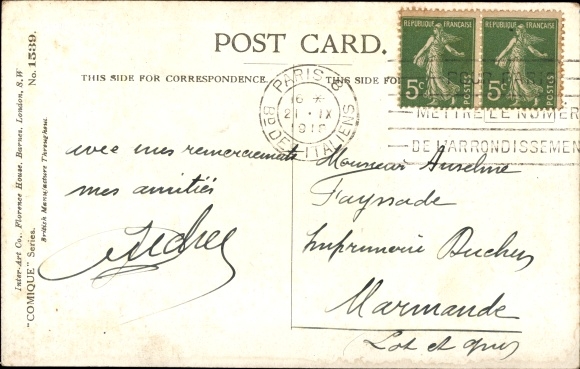 Inter-Art Co., Florence House, Barnes, London, S.W
"COMIQUE" Series.
British Manufacture Throughout.
No. 1539.
POST CARD.
THIS SIDE FOR CORRESPONDENCE.
THIS SIDE FO
REPUBLIQUE FRANÇAISE
5c
POSTES
REPUBLIQUE FRANÇAISE
5c
POSTES
PARIS 8
16
21 · IX
Bd DES ITALIENS
METTRE LE NUMER
DE L'ARRONDISSEMEN
avec mes remerciements
mes amitiés
Monsieur Anselme
Fayssade
Imprimerie Duchez
Marmande
Lot et